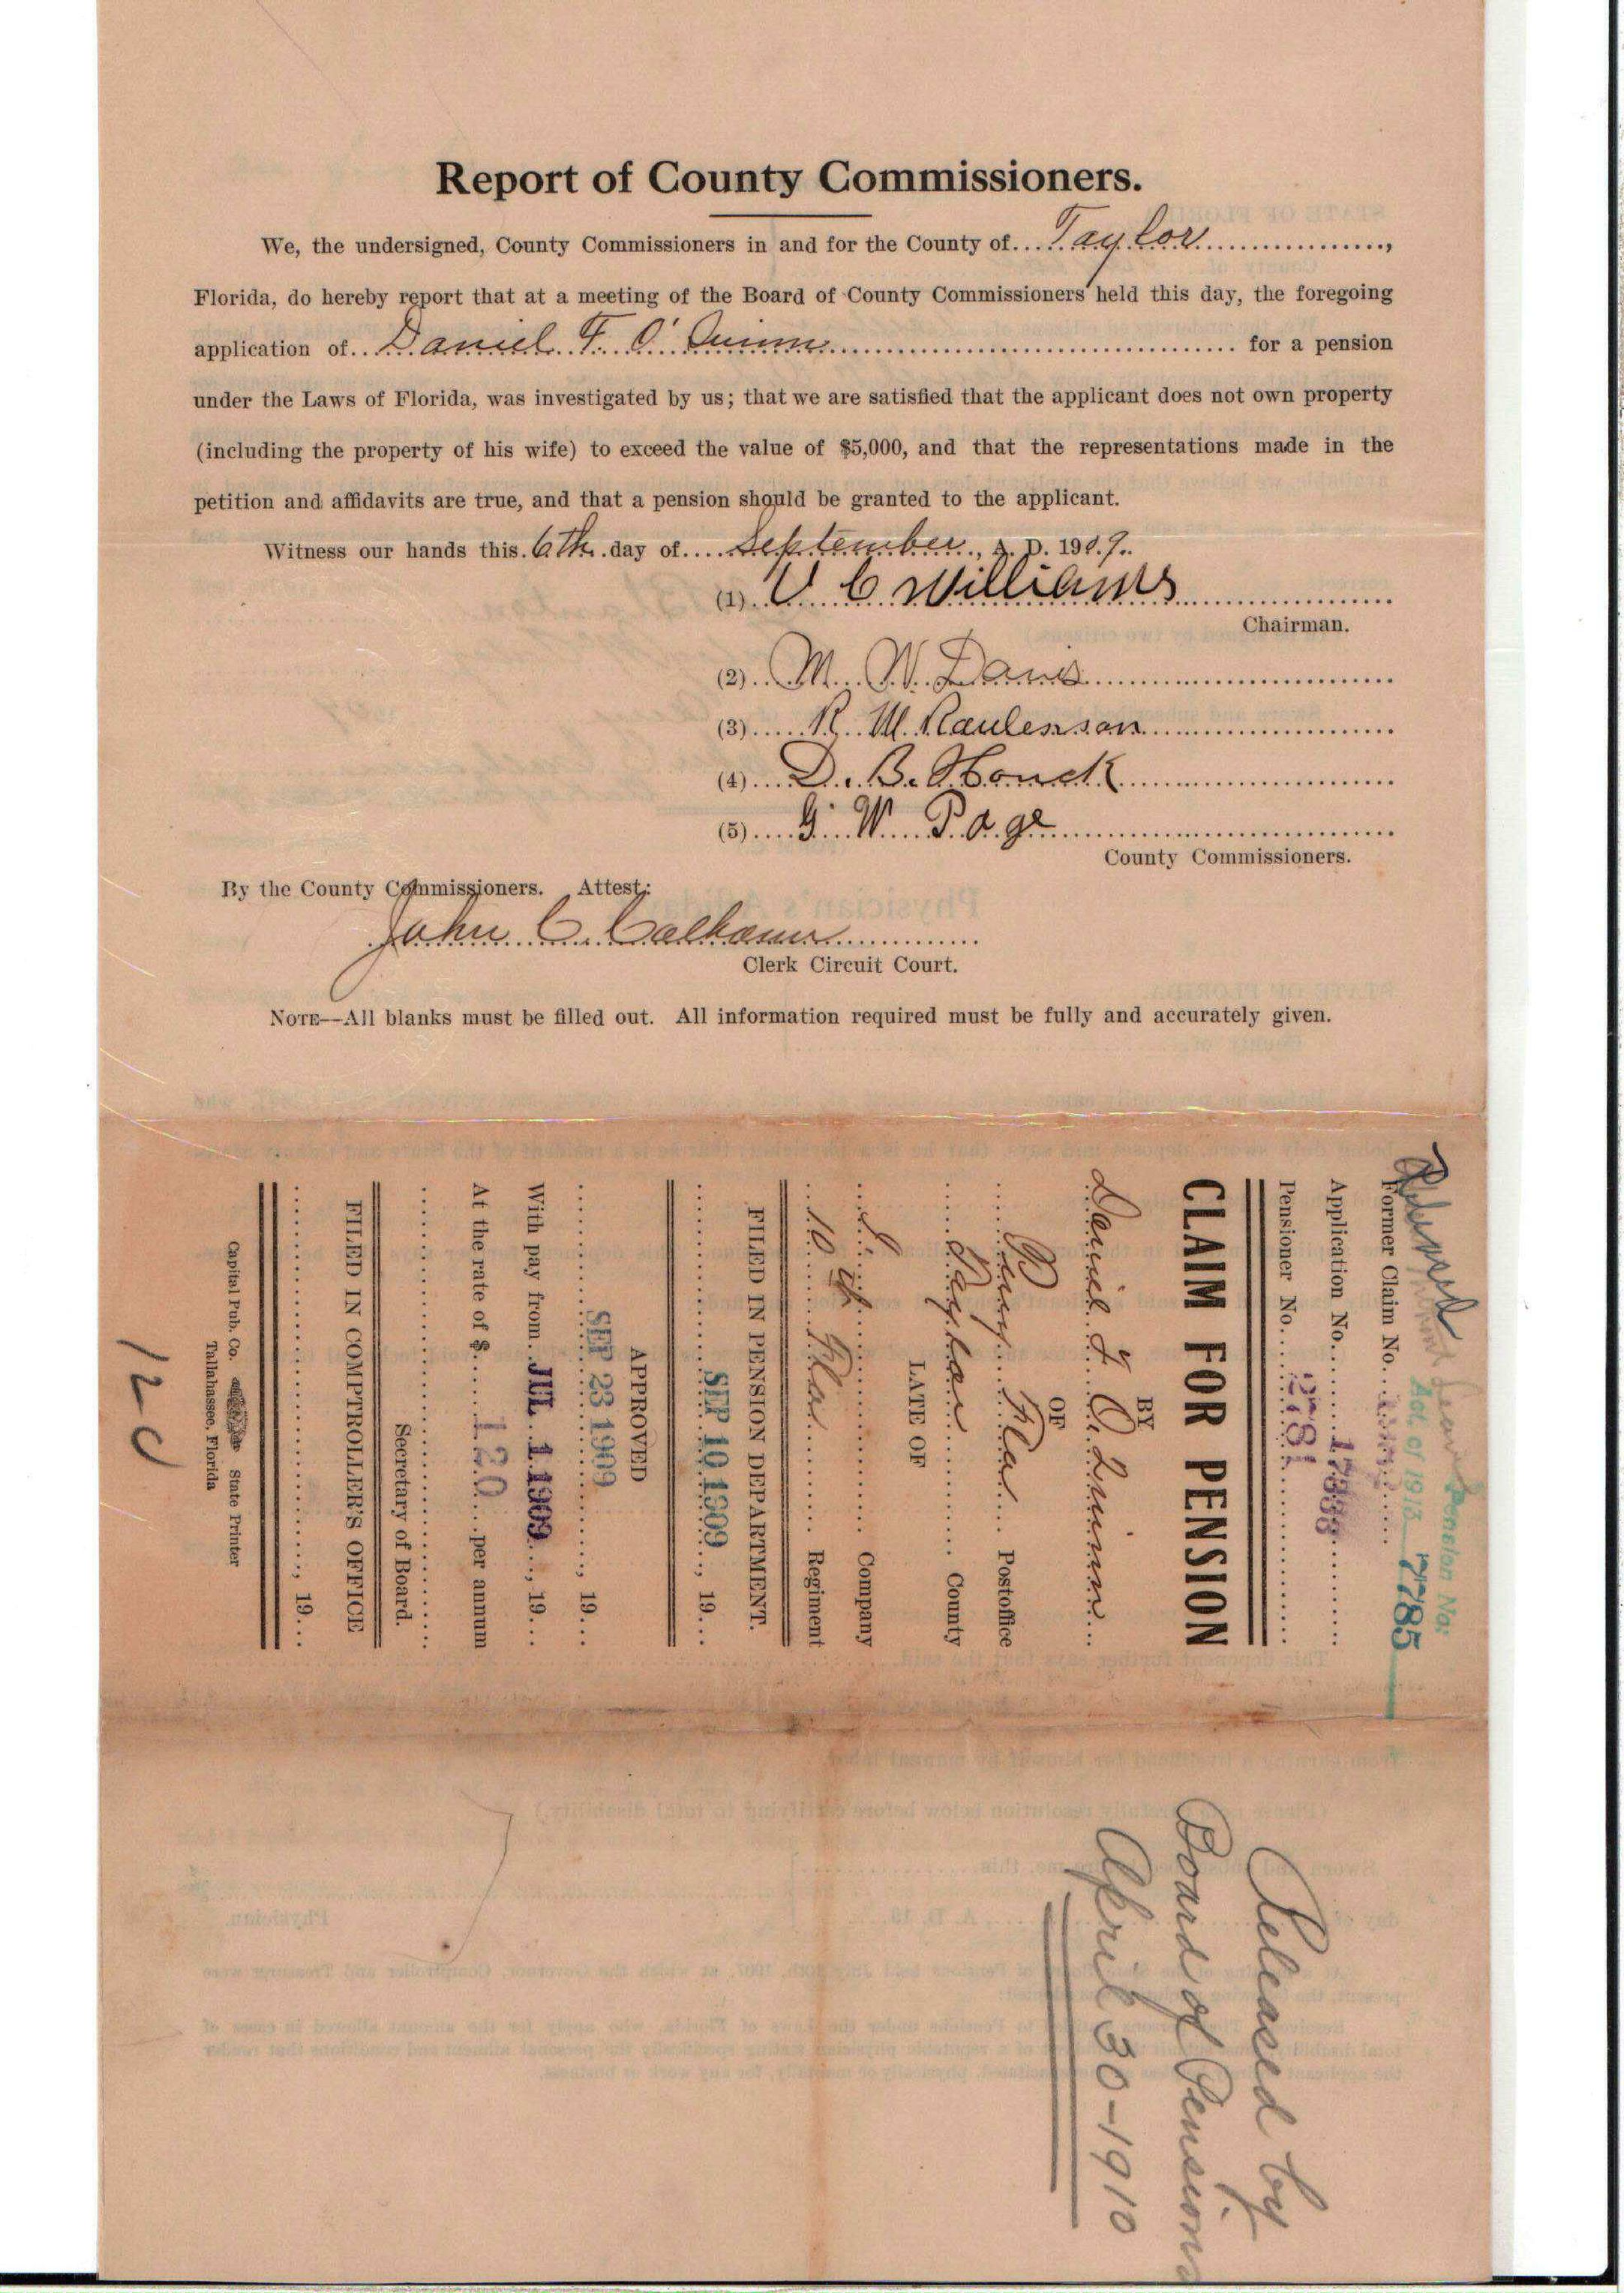 Report of County Commissioners.
We, the undersigned, County Commissioners in and for the County of....Taylor....................,
Florida, do hereby report that at a meeting of the Board of County Commissioners held this day, the foregoing
application of..Daniel F. O'Quinn.................................................... for a pension
under the Laws of Florida, was investigated by us; that we are satisfied that the applicant does not own property
(including the property of his wife) to exceed the value of $5,000, and that the representations made in the
petition and affidavits are true, and that a pension should be granted to the applicant.
Witness our hands this.6th..day of....September., A. D. 1909..
(1)...C Williams....................
Chairman.
(2)..M. W. Davis....................
(3).....R. W. Raulerson....................
(4)....D. B. Houck....................
(5)....G. W. Page....................
County Commissioners.
By the County Commissioners. Attest:
John C. Calhoun................
Clerk Circuit Court.
NOTE--All blanks must be filled out. All information required must be fully and accurately given.
Pension No:
Act of 1913 7785
Former Claim No.
Application No.
Pensioner No....2781
CLAIM FOR PENSION
BY
Daniel F O.Quinn
OF
Perry Fla Postoffice
Taylor County
LATE OF
Company
10 Fla Regiment
FILED IN PENSION DEPARTMENT.
SEP 10 1909, 19...
APPROVED
SEP 23 1909, 19...
With pay from JUL 1 1909, 19...
At the rate of $ 120 per annum
Secretary of Board.
FILED IN COMPTROLLER'S OFFICE
, 19...
Capital Pub. Co. State Printer
Tallahassee, Florida
120
Released by
Board of Pensions
April 30-1910